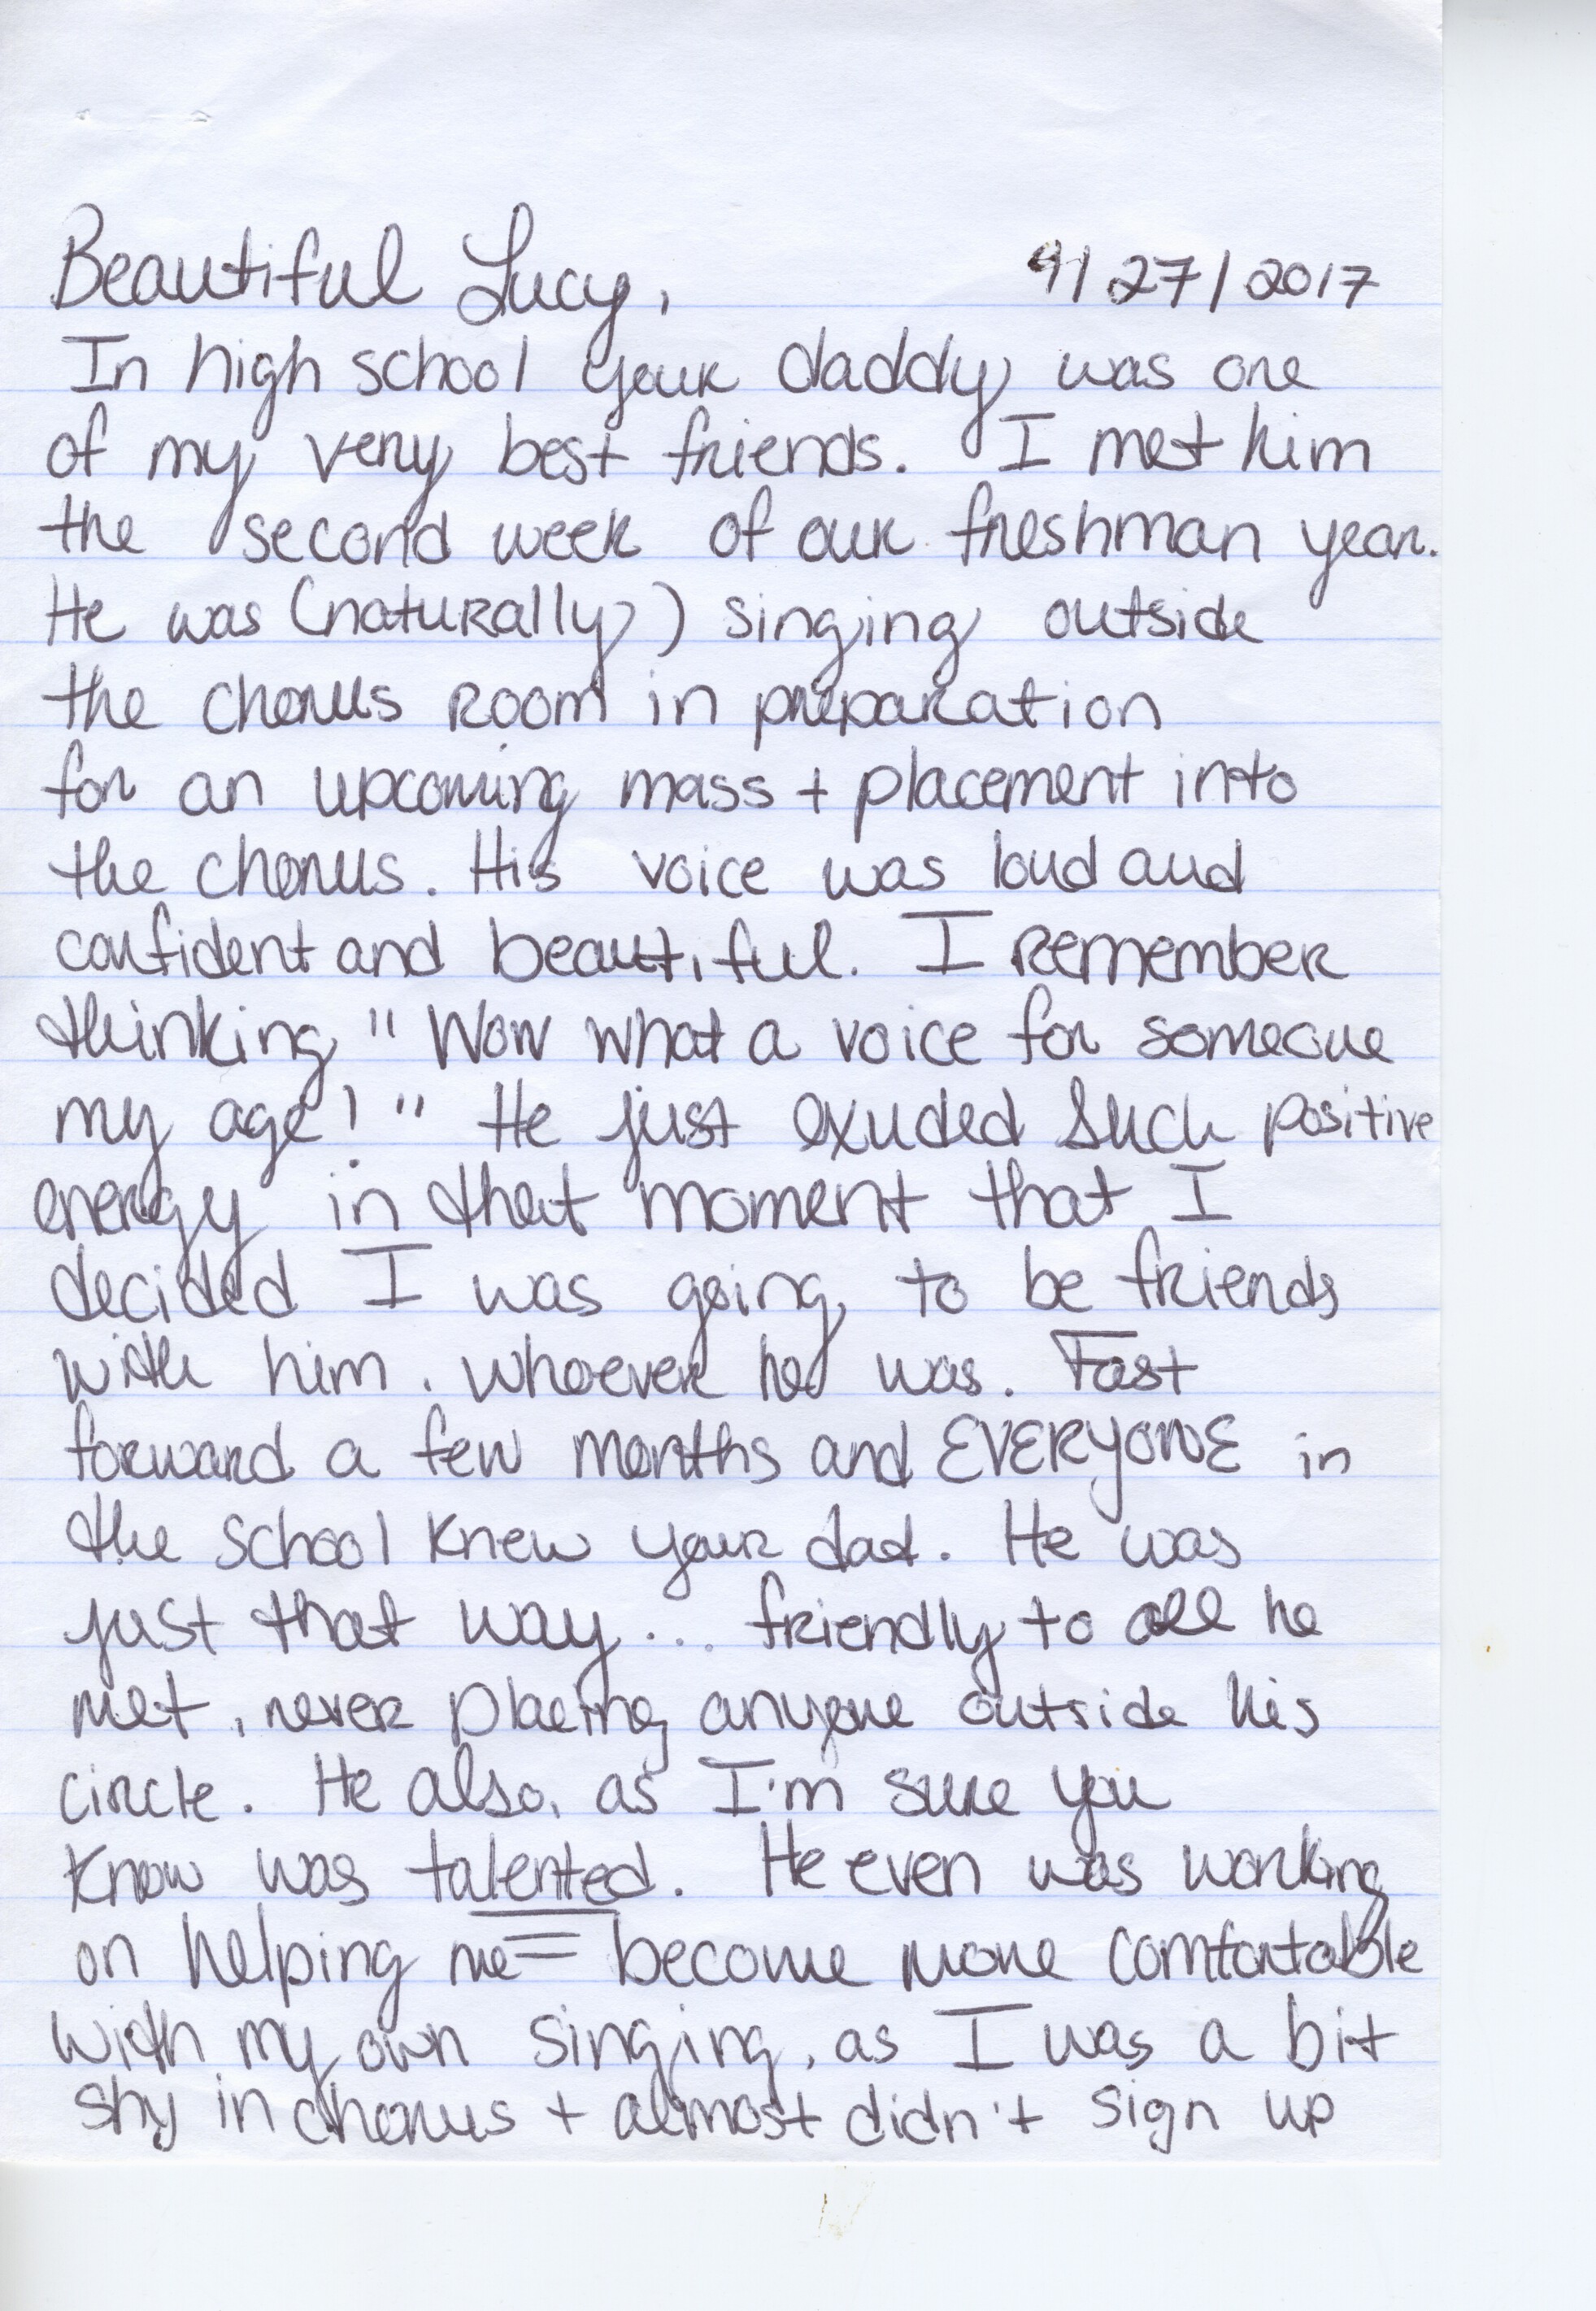 Beautiful Lucy, 9/27/2017
In high school your daddy was one
of my very best friends. I met him
the second week of our freshman year.
He was (naturally) singing outside
the chorus room in preparation
for an upcoming mass + placement into
the chorus. His voice was loud and
confident and beautiful. I remember
thinking "Wow what a voice for someone
my age!" He just exuded such positive
energy in that moment that I
decided I was going to be friends
with him, whoever he was. Fast
forward a few months and EVERYONE in
the school knew your dad. He was
just that way... friendly to all he
met, never placing anyone outside his
circle. He also, as I'm sure you
know was talented. He even was working
on helping me become more comfortable
with my own singing, as I was a bit
shy in chorus + almost didn't sign up